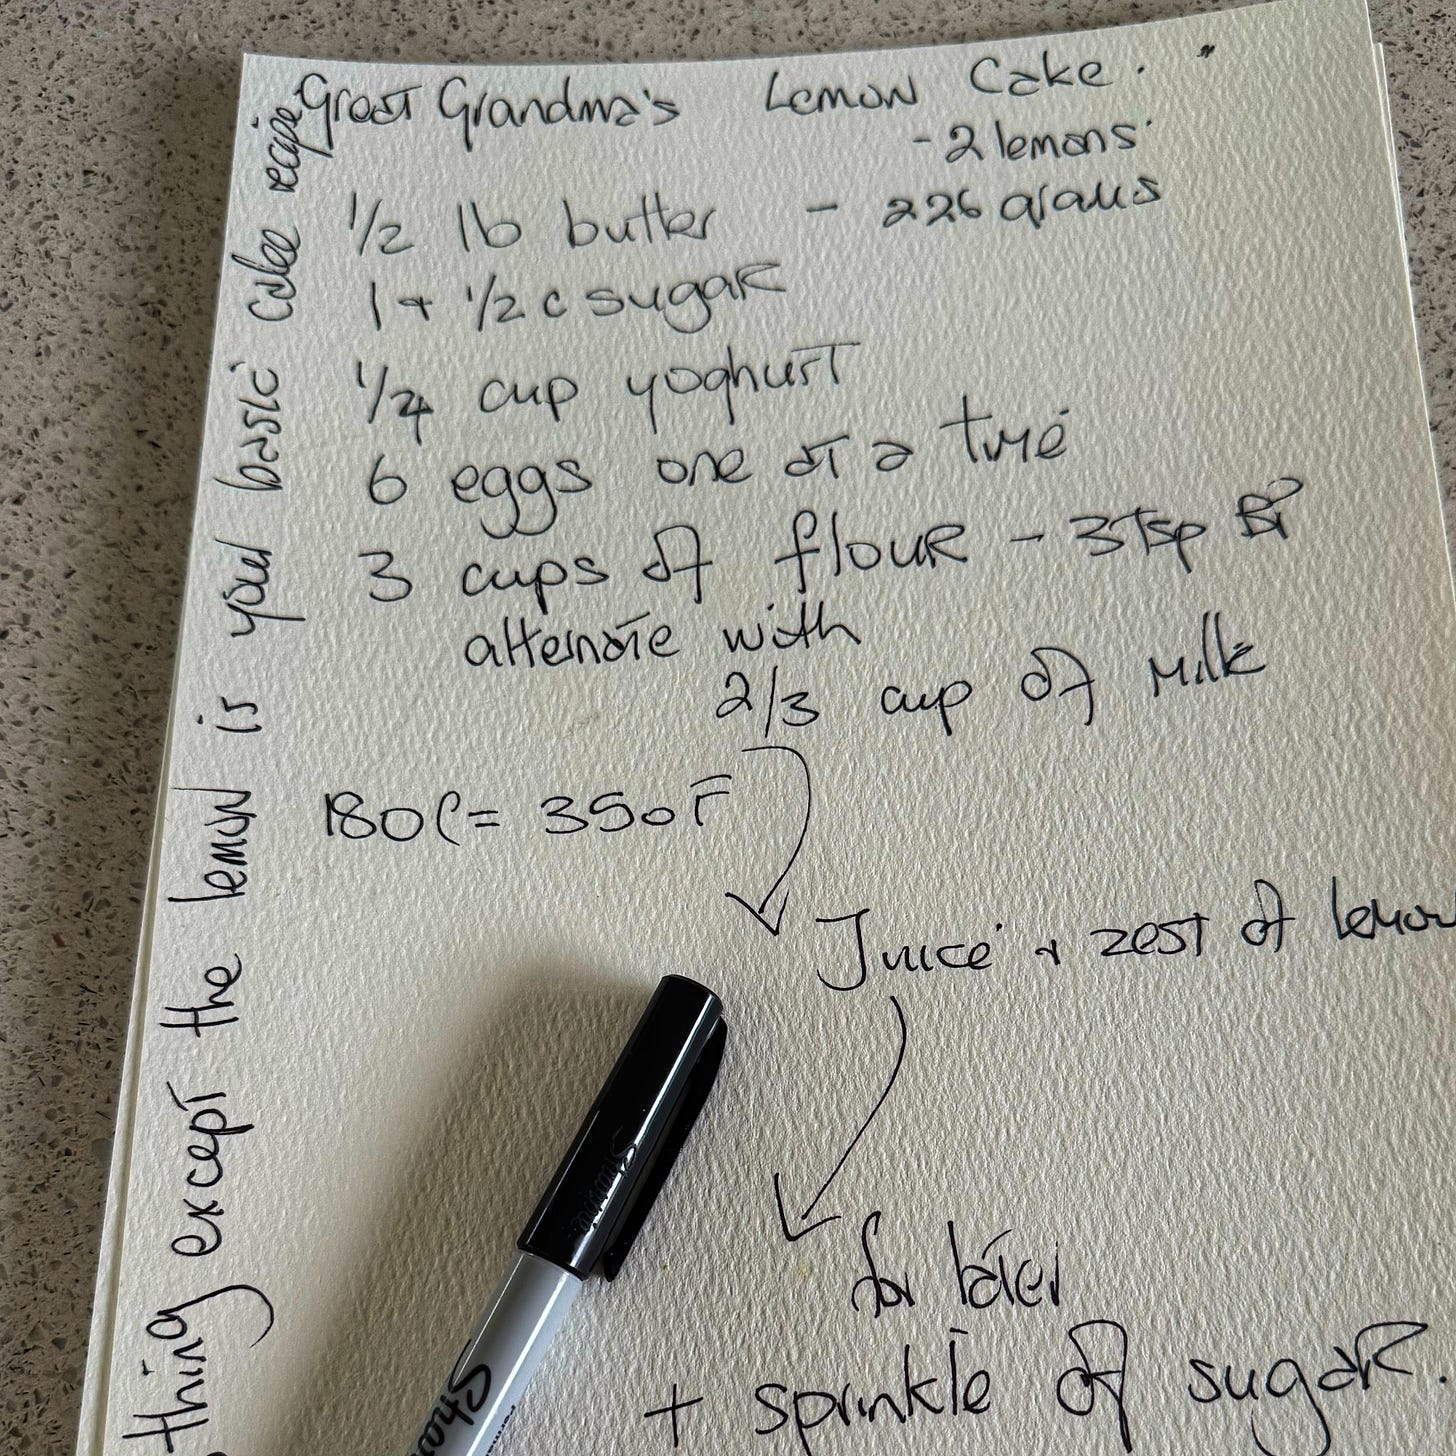 Great Grandma's Lemon Cake.
- 2 lemons
1/2 lb butter - 226 grams
1 + 1/2 c sugar
1/4 cup yoghurt
6 eggs one at a time
3 cups of flour - 3 Tsp BP
alternate with
2/3 cup of Milk
180C = 350F
Juice + zest of lemon
for later
+ sprinkle of sugar.
thing except the lemon is your basic cake recipe
Sharpie